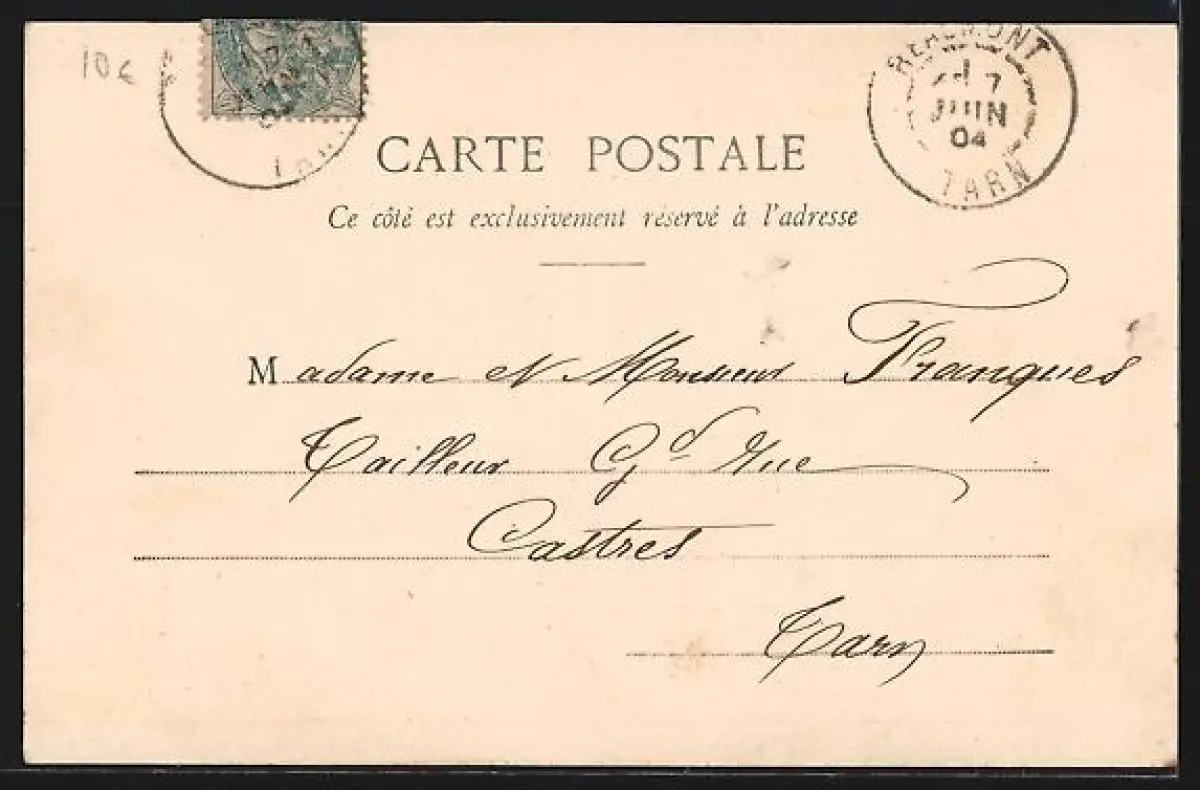 10€
REALMONT
7
JUIN
04
TARN
CARTE POSTALE
Ce côté est exclusivement réservé à l'adresse
Madame et Monsieur Franques
Tailleur Gd Rue
Castres
Tarn